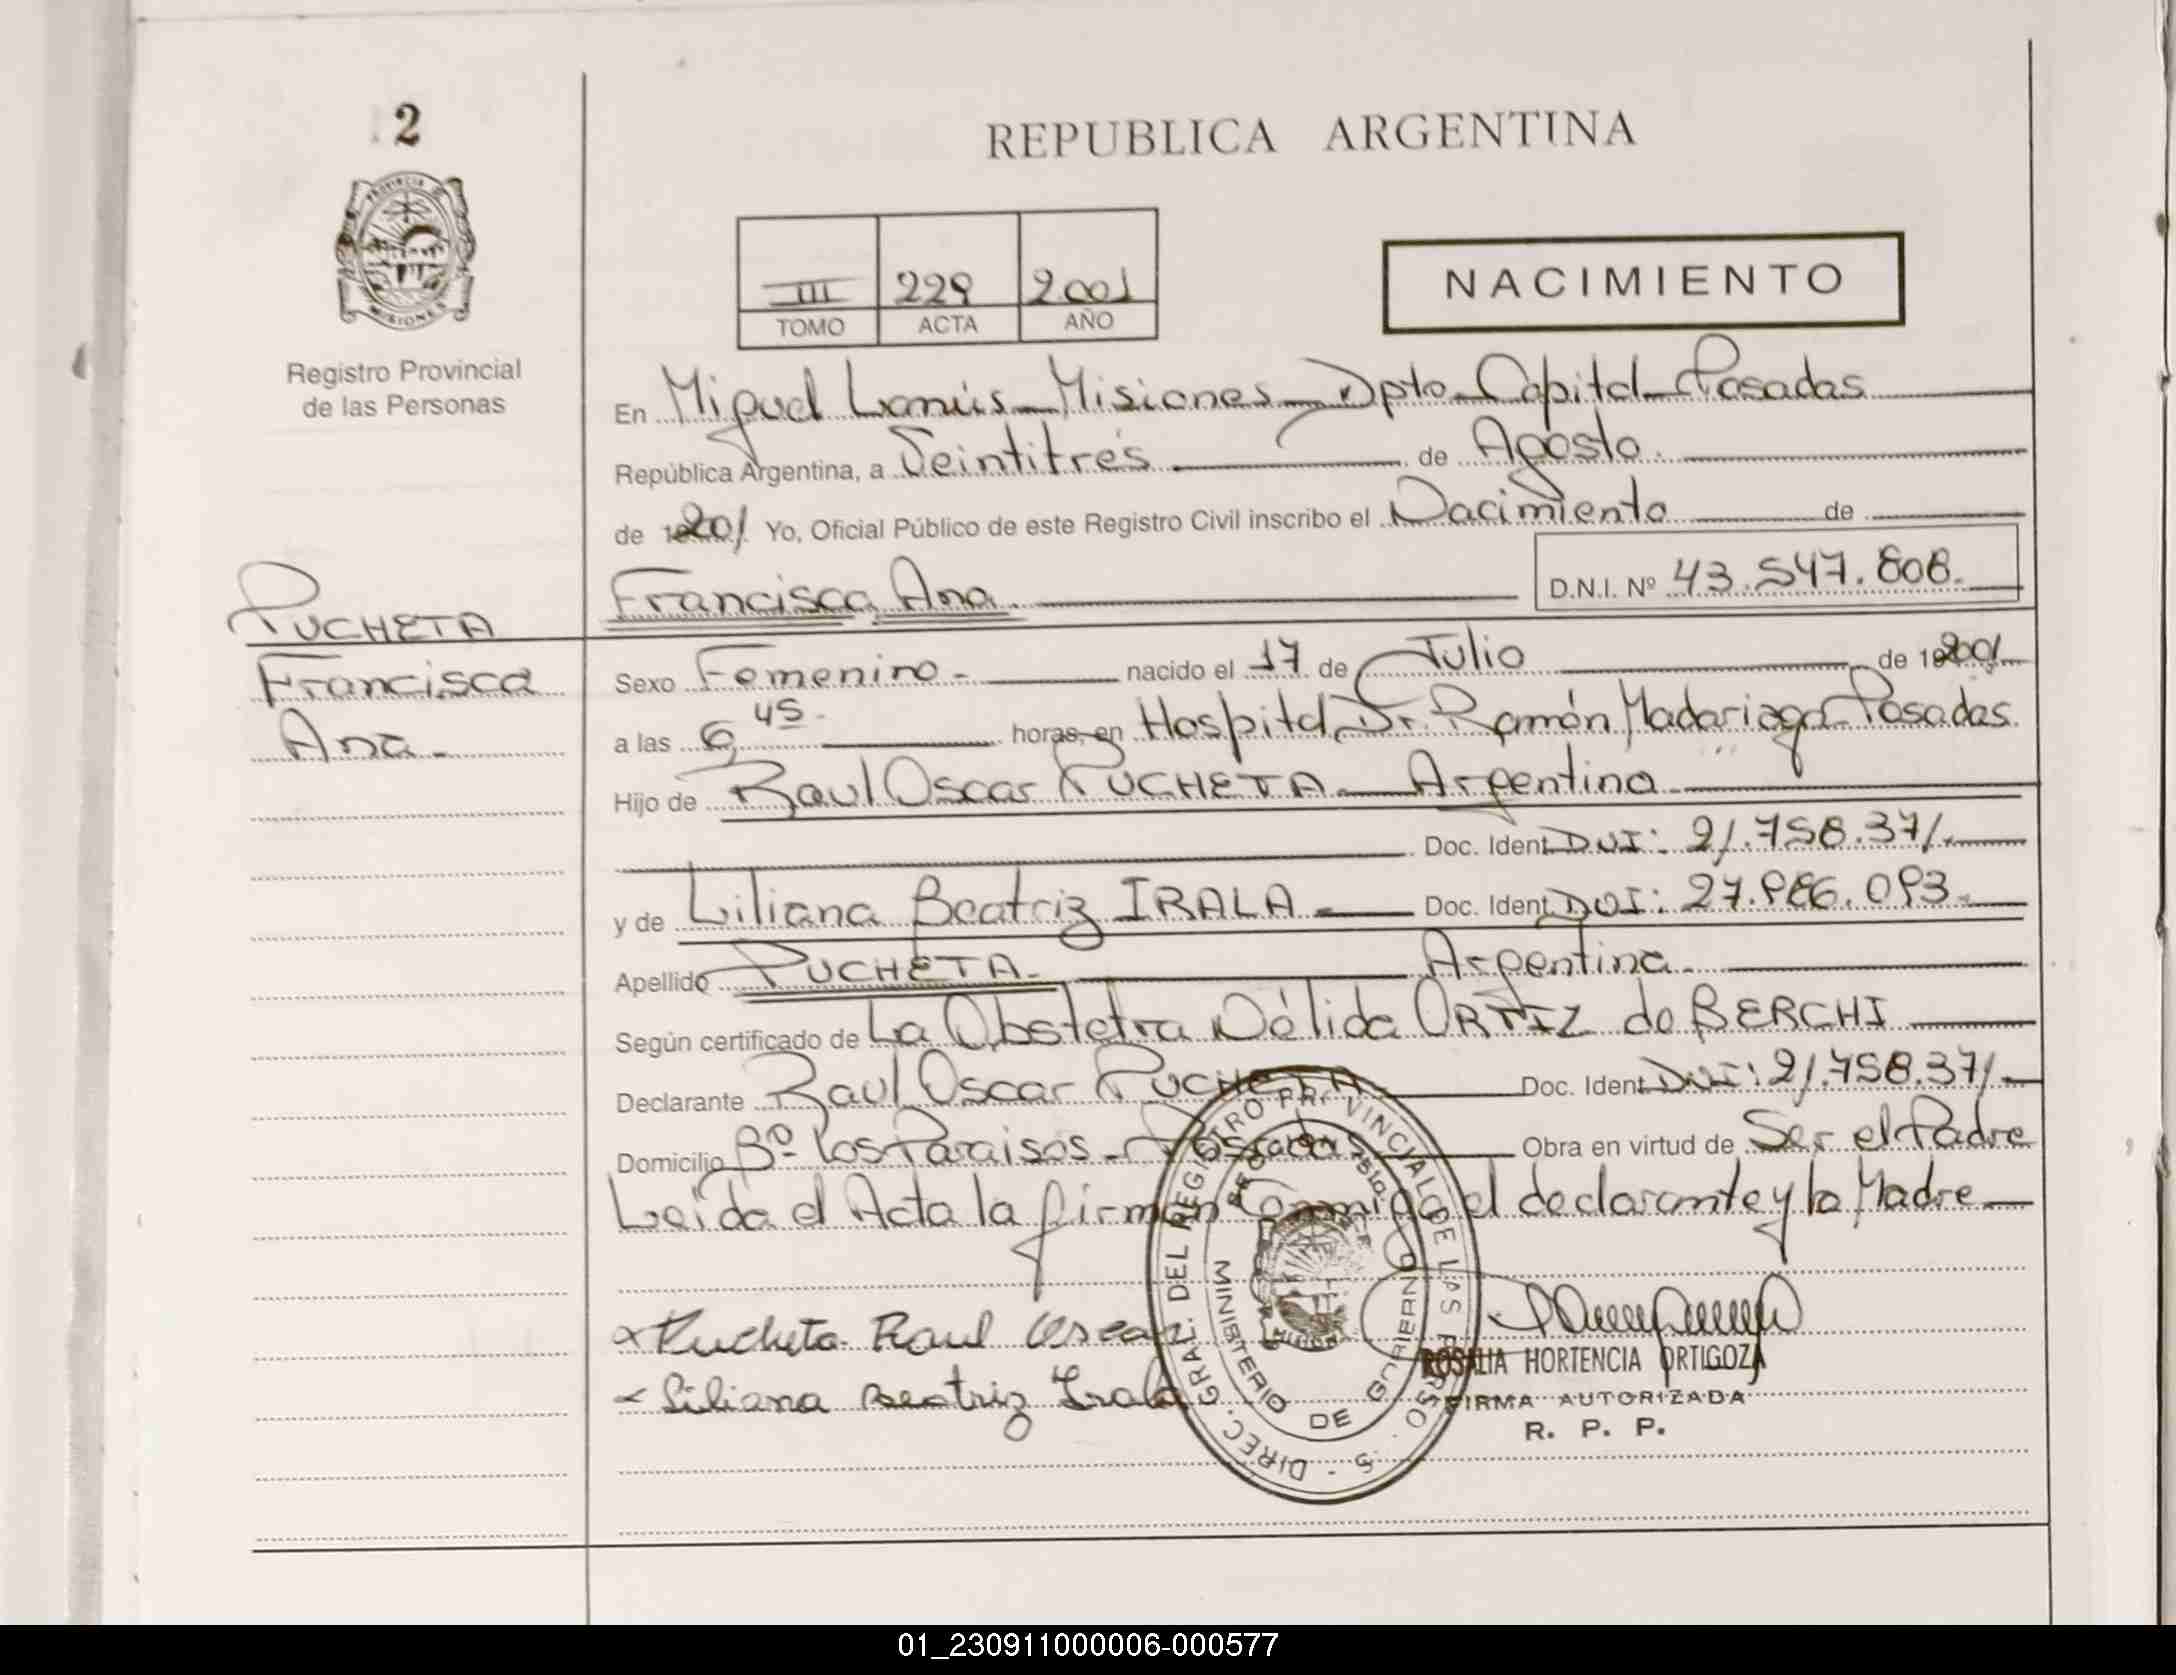 2
REPUBLICA ARGENTINA
PROVINCIA DE
MISIONES
III 229 2001
TOMO ACTA AÑO
NACIMIENTO
Registro Provincial
de las Personas
En Miguel Lanús - Misiones - Dpto. Capital - Posadas
República Argentina, a Veintitrés de Agosto.
de 2001 Yo, Oficial Público de este Registro Civil inscribo el Nacimiento de
Francisca Ana.
D.N.I. Nº 43.547.808.
PUCHETA
Francisca
Ana.
Sexo Femenino - nacido el 17 de Julio de 2001
a las 6,45 horas, en Hospital Dr. Ramón Madariaga - Posadas.
Hijo de Raul Oscar PUCHETA - Argentino.
Doc. Ident. DNI: 21.758.371.
y de Liliana Beatriz IRALA - Doc. Ident. DNI: 27.986.093.
Apellido PUCHETA. Argentina.
Según certificado de La Obstetra Nélida ORTIZ de BERCHI
Declarante Raul Oscar PUCHETA. Doc. Ident. DNI: 21.758.371
Domicilio Bº Los Paraisos - Posadas Obra en virtud de Ser el Padre
Leída el Acta la firman Conmigo el declarante y la Madre
x Pucheta Raul Oscar
x Liliana Beatriz Irala
DIREC. GRAL. DEL REGISTRO PROVINCIAL DE LAS PERSO
MINISTERIO DE GOBIERNO
ROSALIA HORTENCIA ORTIGOZA
FIRMA AUTORIZADA
R. P. P.
01_230911000006-000577